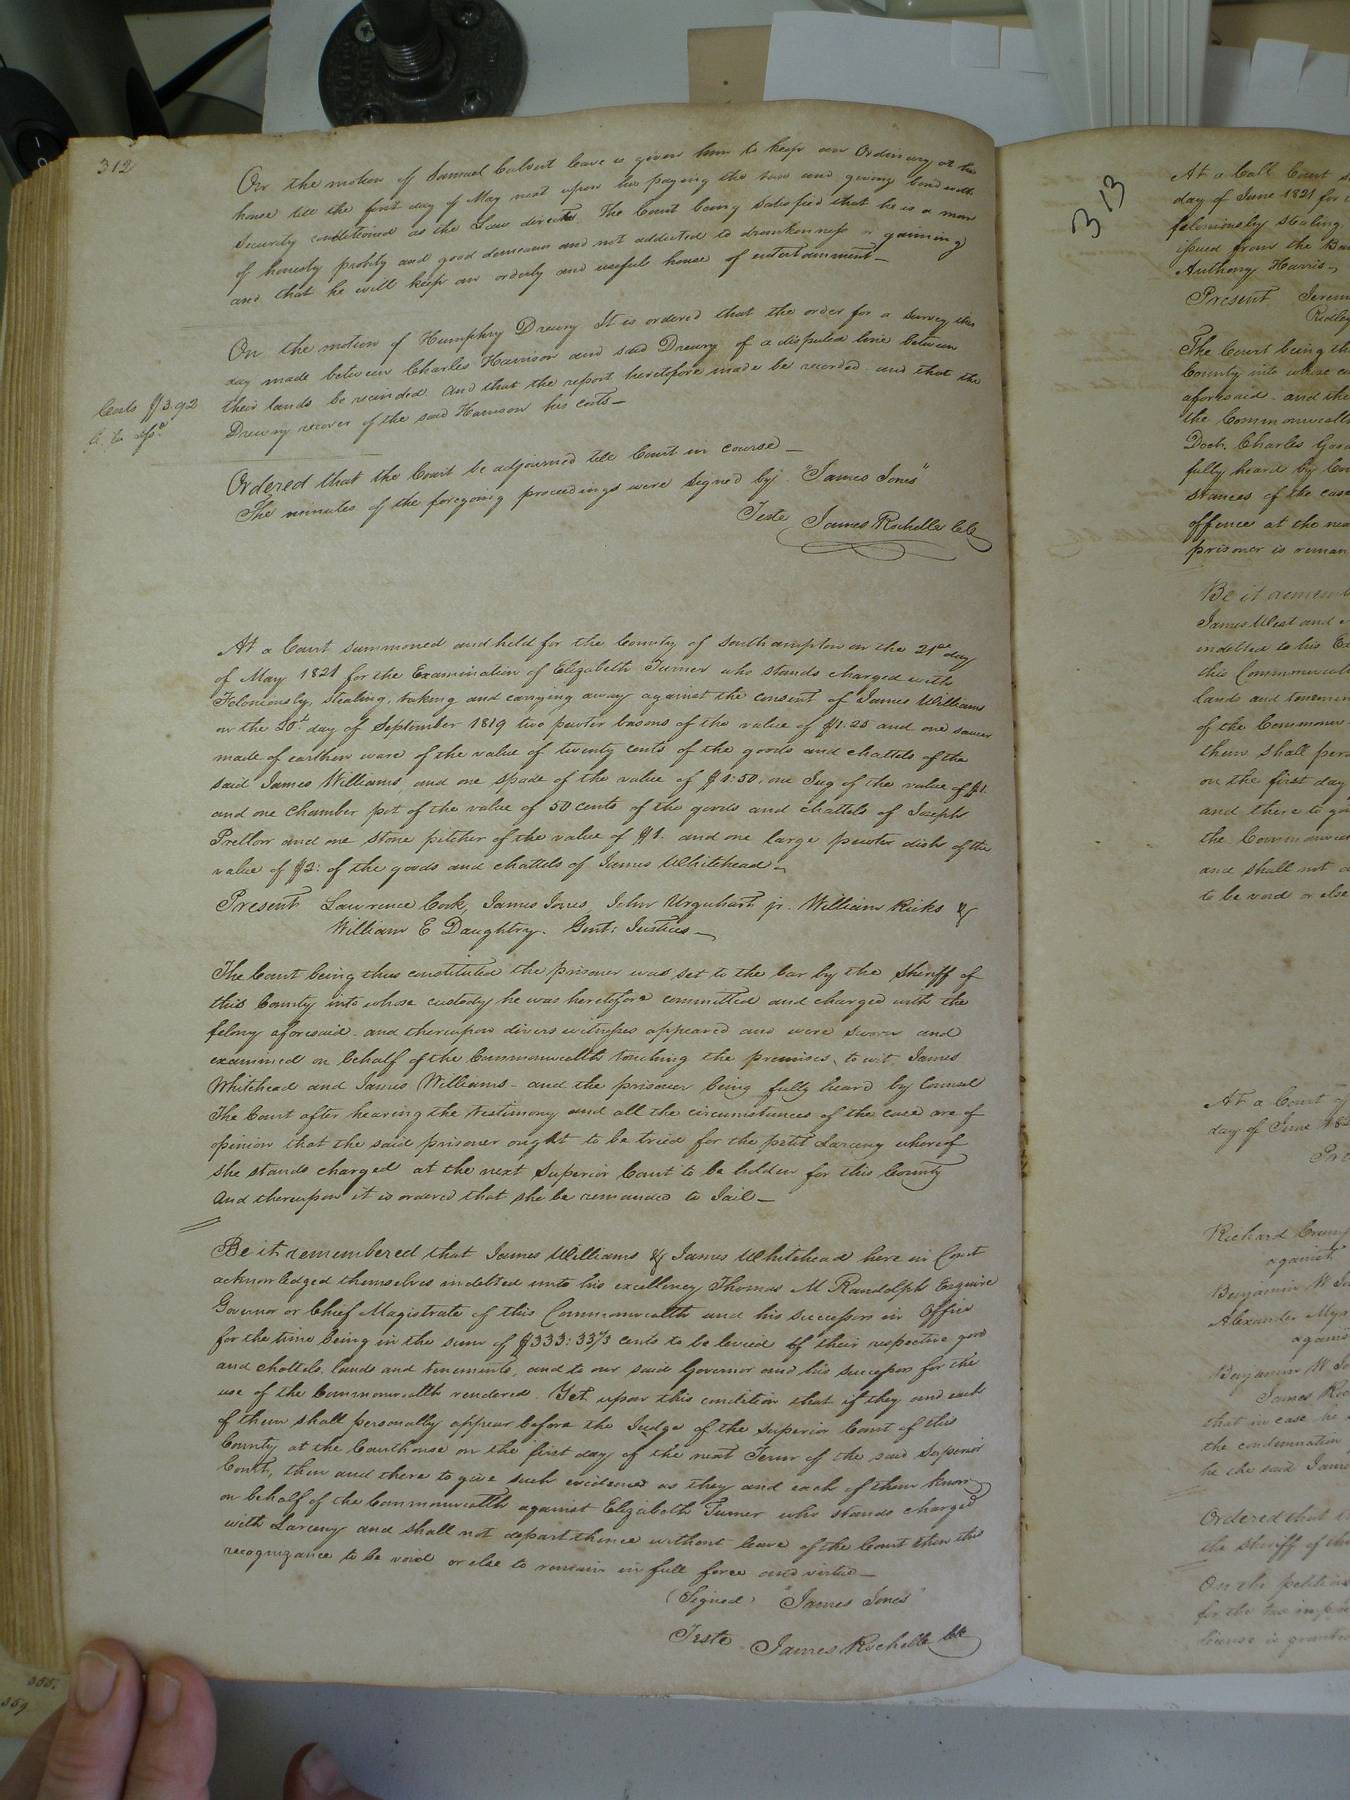 312
On the motion of Samuel Calvert leave is given him to keep an Ordinary at his
house till the first day of May next upon his paying the tax and giving bond with
Security conditioned as the Law directs The Court being satisfied that he is a man
of honesty probity and good demeanor and not addicted to drunkenness or gaming
and that he will keep an orderly and useful house of entertainment_
On the motion of Humphry Drewry It is ordered that the order for a survey this
day made between Charles Harrison and said Drewry of a disputed line between
their lands be rescinded And that the report heretofore made be recorded and that the
Drewry recover of the said Harrison his costs_
Costs $3.92
Ordered that the Court be adjourned till Court in course_
The minutes of the foregoing proceedings were signed by "James Jones"
Teste James Rochelle Clk
At a Court summoned and held for the County of Southampton on the 21st day
of May 1821 for the Examination of Elizabeth Turner who stands charged with
Feloniously, stealing, taking and carrying away against the consent of James Williams
on the 20th day of September 1819 two pewter basons of the value of $1.25 and one saucer
made of earthen ware of the value of twenty cents of the goods and chattels of the
said James Williams, and one spade of the value of $1:50, one Jug of the value of $1.
and one chamber pot of the value of 50 cents of the goods and chattels of Joseph
Pretlow and one stone pitcher of the value of $1. and one large pewter dish of the
value of $2: of the goods and chattels of James Whitehead_
Present Lawrence Cook, James Jones, John Urquhart jr. William Ricks &
William E Daughtry. Gent: Justices_
The Court being thus constituted the prisoner was set to the bar by the Sheriff of
this County into whose custody he was heretofore committed and charged with the
felony aforesaid. and thereupon divers witnesses appeared and were sworn and
examined on behalf of the Commonwealth touching the premises, to wit. James
Whitehead and James Williams_ and the prisoner being fully heard by Counsel
The Court after hearing the testimony and all the circumstances of the case are of
opinion that the said prisoner ought to be tried for the petit Larceny whereof
she stands charged at the next Superior Court to be holden for this County
And thereupon it is ordered that she be remanded to Jail_
Be it remembered that James Williams & James Whitehead here in Court
acknowledged themselves indebted unto his excellency Thomas M Randolph Esquire
Governor or Chief Magistrate of this Commonwealth and his successors in Office
for the time being in the sum of $333:33 1/3 cents to be levied of their respective goods
and chattels, lands and tenements, and to our said Governor and his successors for the
use of the Commonwealth rendered. Yet upon this condition that if they and each
of them shall personally appear before the Judge of the Superior Court of this
County at the Courthouse on the first day of the next Term of the said Superior
Court, then and there to give such evidence as they and each of them know
on behalf of the Commonwealth against Elizabeth Turner who stands charged
with Larceny and shall not depart thence without leave of the Court then this
recognizance to be void or else to remain in full force and virtue_
(Signed) "James Jones"
Teste James Rochelle Clk
355.
359
313
At a Call Court s
day of June 1821 for
feloniously stealing
issued from the Ba
Anthony Harris_
Present Jerem
Ridley
The Court being th
County into whose cu
aforesaid. and the
the Commonwealth
Doct. Charles
fully heard by Cou
stances of the case
offence at the ne
prisoner is reman
Be it remem
James West and
indebted to his Ex
this Commonweal
lands and tenemen
of the Common
them shall pers
on the first day
and there to gi
the Commonwea
and shall not d
to be void or else
At a Court
day of June 182
Pre
Richard
against
Benjamin W
Alexander
against
Benjamin W
James Ro
that in case he
the condemnation
he the said Jame
Ordered that
the Sheriff of th
On the petition
for the
license is grante